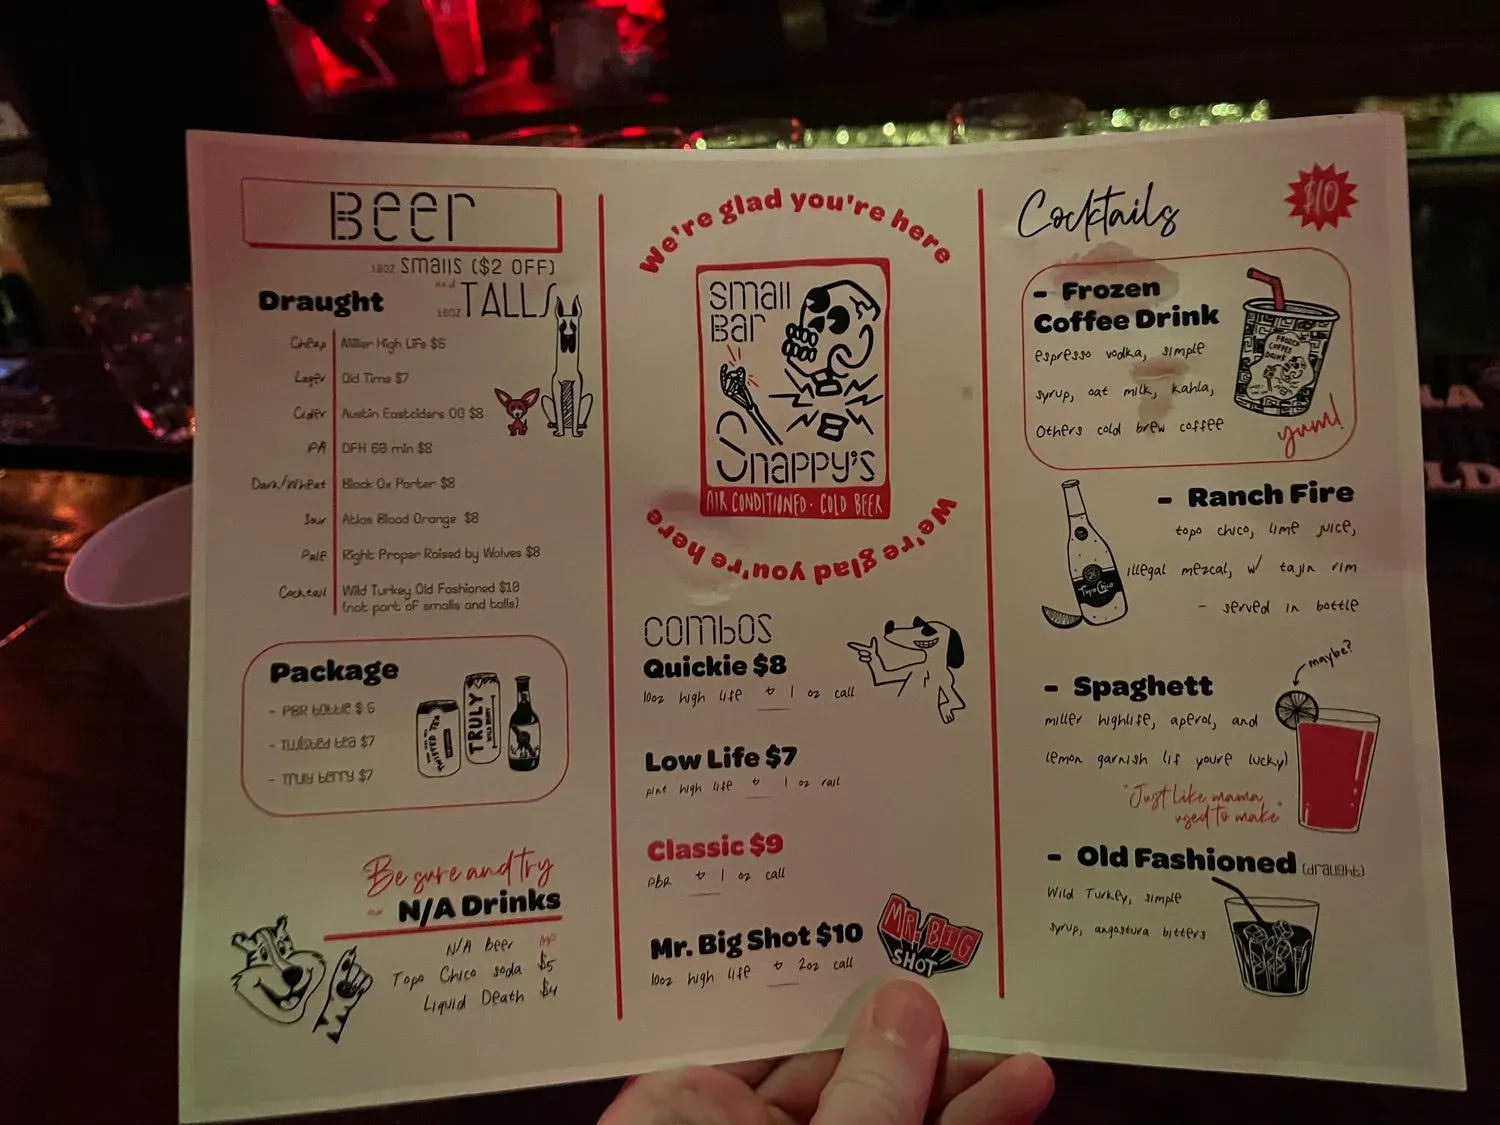 Beer
smalls ($2 OFF)
and
16oz TALLS
Draught
Cheap Miller High Life $6
Lager Old Time $7
Cider Austin Eastciders OG $8
IPA DFH 60 min $8
Dark/Wheat Black Ox Porter $8
Sour Atlas Blood Orange $8
Pale Right Proper Raised by Wolves $8
Cocktail Wild Turkey Old Fashioned $10
(not part of smalls and talls)
Package
- PBR bottle $
- Twisted tea $7
- Truly berry $7
TWISTED TEA
TRULY
WILD BERRY
Be sure and try
our N/A Drinks
N/A Beer MP
Topo Chico soda $5
Liquid Death $4
We're glad you're here
small
Bar
Snappy's
AIR CONDITIONED · COLD BEER
We're glad you're here
combos
Quickie $8
10oz high life + 1 oz call
Low Life $7
pint high life + 1 oz rail
Classic $9
PBR + 1 oz call
Mr. Big Shot $10
10oz high life + 2oz call
MR. BIG
SHOT
Cocktails
$10
- Frozen
Coffee Drink
espresso vodka, simple
syrup, oat milk, kahla,
Others cold brew coffee
FROZEN
COFFEE
DRINK
yum!
- Ranch Fire
topo chico, lime juice,
illegal mezcal, w/ tajin rim
- served in bottle
Topo Chico
- Spaghett
maybe?
miller highlife, aperol, and
lemon garnish (if youre lucky)
"Just like mama
used to make"
- Old Fashioned (draught)
Wild Turkey, simple
syrup, angostura bitters